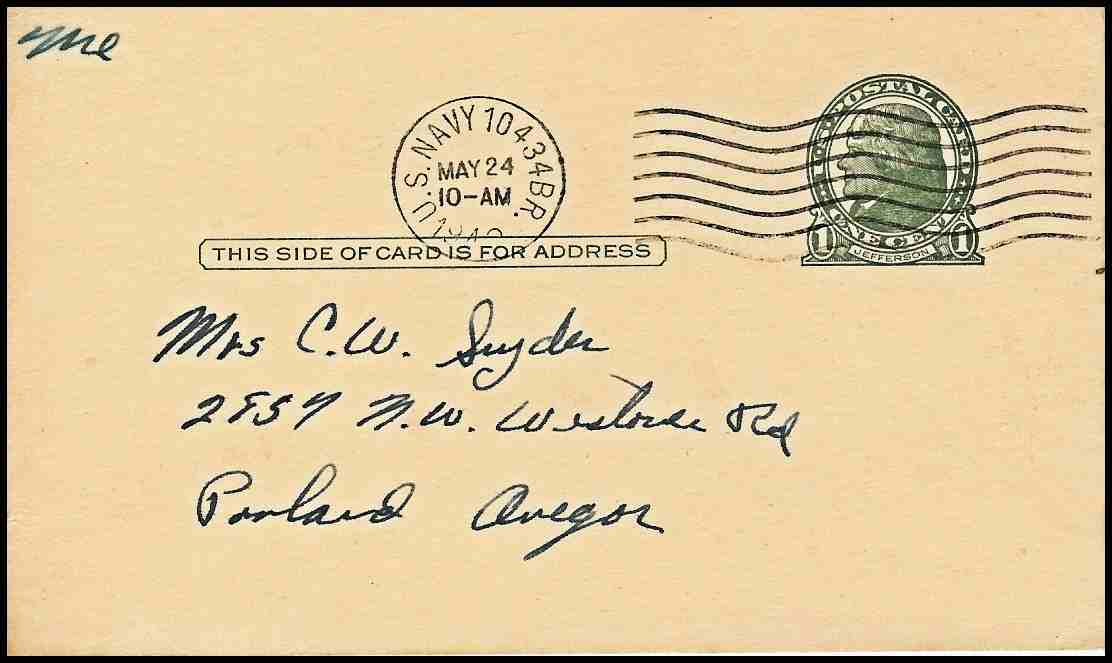 me
U.S. NAVY 10434 BR.
MAY 24
10-AM
U.S. POSTAL CARD
ONE CENT
1 1
JEFFERSON
THIS SIDE OF CARD IS FOR ADDRESS
Mrs C.W. Snyder
N.W. Westover Rd
Portland Oregon